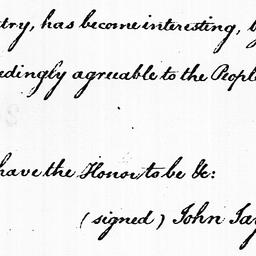 try, has become interesting,
edingly agreuable to the People
have the Honor to be &c:
(signed) John Jay